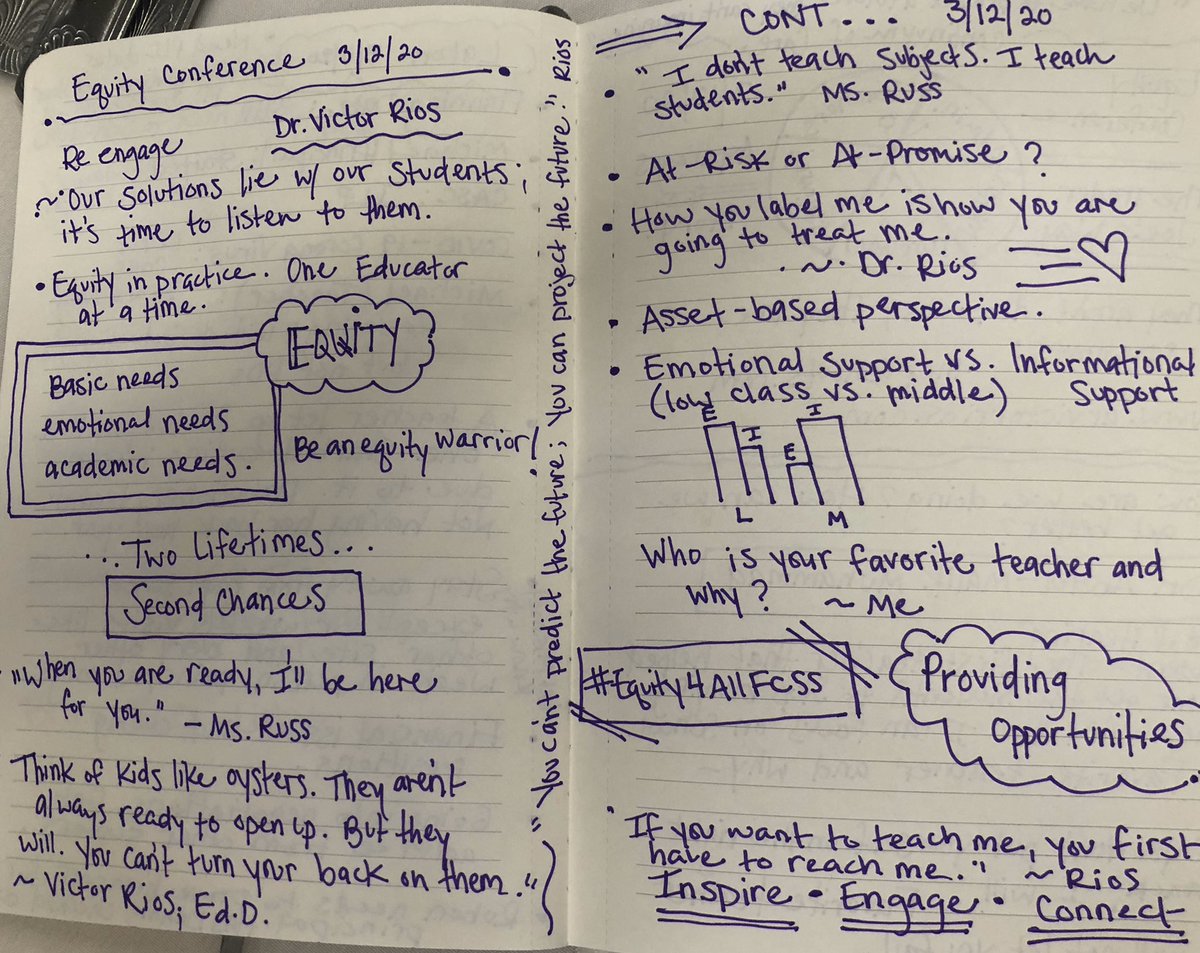 Equity Conference 3/12/20
Dr. Victor Rios
Re engage
~"Our Solutions lie w/ our Students;
it's time to listen to them.
• Equity in practice. One Educator
at a time.
EQUITY
Basic needs
emotional needs
academic needs.
Be an equity warrior!
... Two Lifetimes...
Second Chances
"When you are ready, I'll be here
for you." - Ms. Russ
Think of kids like oysters. They aren't
always ready to open up. But they
will. You can't turn your back on them."
~ Victor Rios, Ed.D.
"You can't predict the future; you can project the future." Rios
CONT... 3/12/20
• "I don't teach Subjects. I teach
students." Ms. Russ
• At-Risk or At-Promise?
• How you label me is how you are
going to treat me.
~ Dr. Rios
• Asset-based perspective.
• Emotional Support vs. Informational
(low class vs. middle) Support
E I E I
L M
Who is your favorite teacher and
why? ~ Me
#Equity4AllFCSS
Providing
Opportunities
"If you want to teach me, you first
have to reach me." ~ Rios
Inspire • Engage • Connect